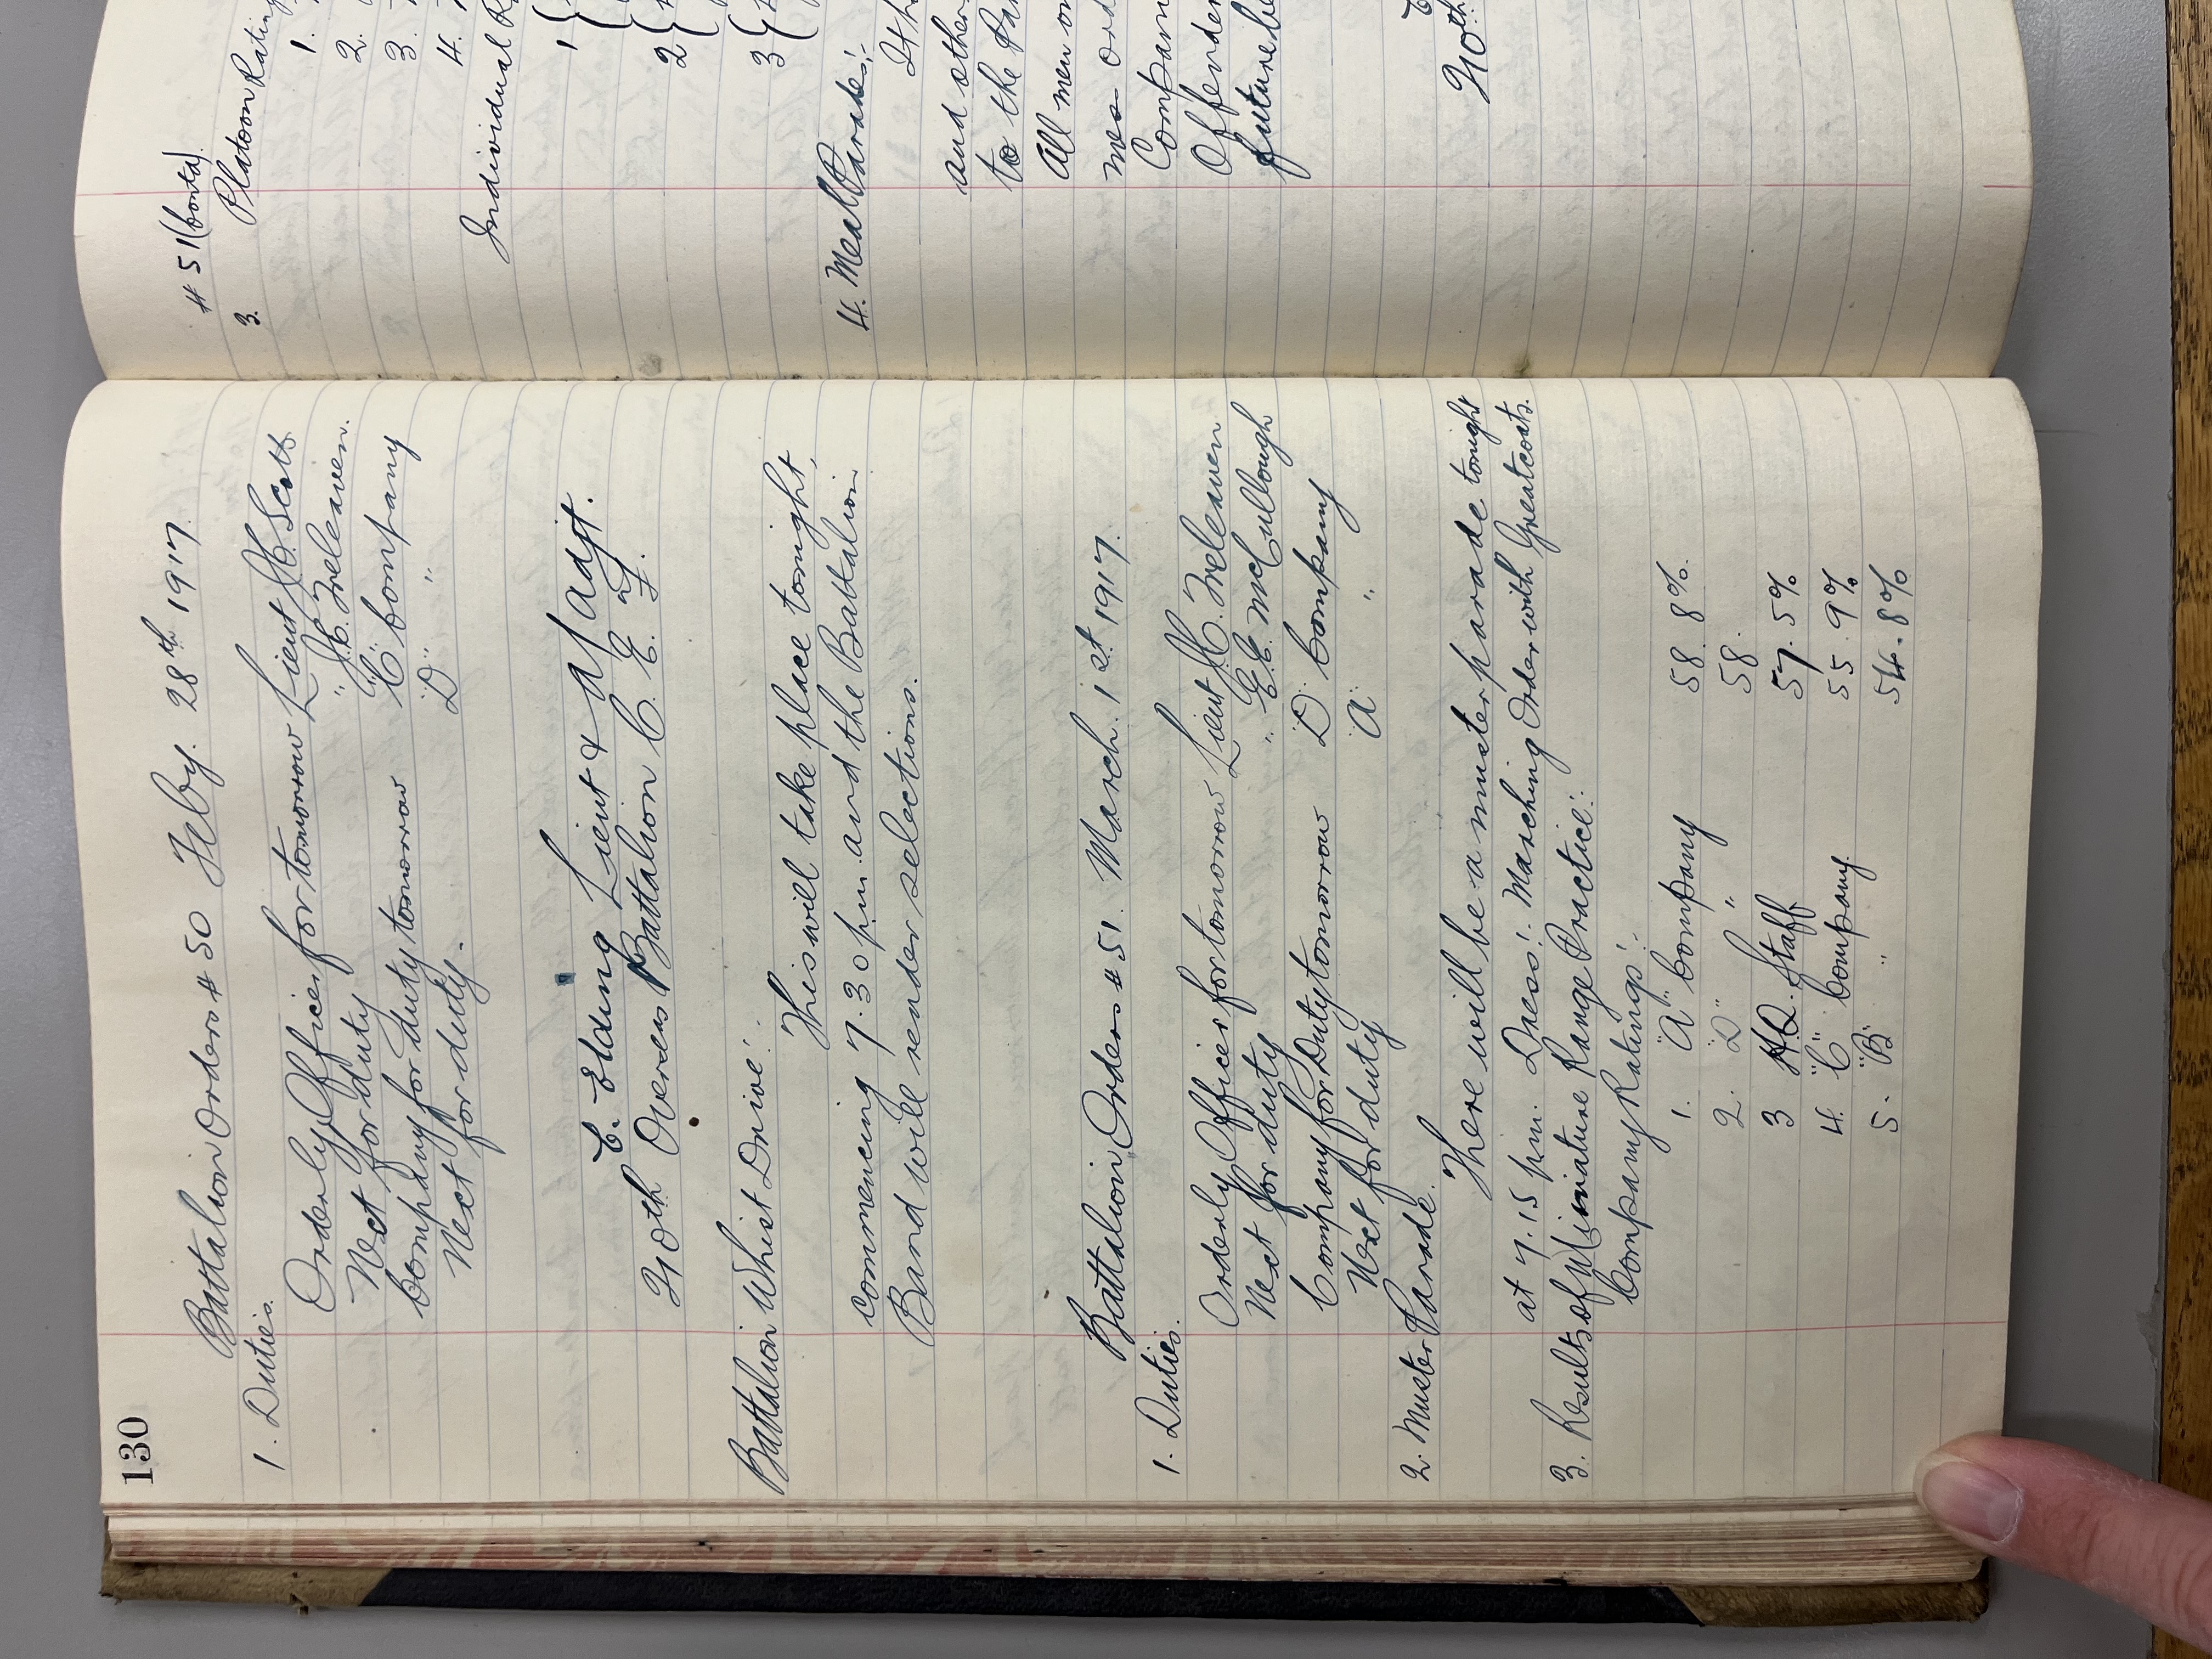 130
Battalion Orders # 50 Feby. 28th 1917.
1. Duties.
Orderly Officer for tomorrow Lieut H. Scott
Next for duty " H. Treleaven.
Company for Duty tomorrow "C" Company
Next for duty. "D" "
C. Elding Lieut & a/adjt.
210th Overseas Battalion C. E. F.
Battalion Whist Drive:
This will take place tonight,
commencing 7.30 p.m. and the Battalion
Band will render selections.
Battalion Orders # 51. March. 1st 1917.
1. Duties.
Orderly Officer for tomorrow Lieut H. Treleaven
Next for duty " E.E. McCullough
Company for Duty tomorrow "D" Company
Next for duty "A" "
2. Muster Parade.
There will be a muster parade tonight
at 7.15 p.m. Dress: Marching Order with Greatcoats.
3. Results of Miniature Range Practice:
Company Ratings:
1. "A" Company 58.8%.
2. "D" " 58.
3 HQ. Staff 57.5%
4. "C" Company. 55.9%
5. "B" " 54.8%
# 51 (Contd)
3. Platoon Rating
1.
2.
3.
4.
Individual R
1 {
2 {
3 {
4. Meal Parades:
and other
to the
All men
mess
Company
Offender
future be
210th